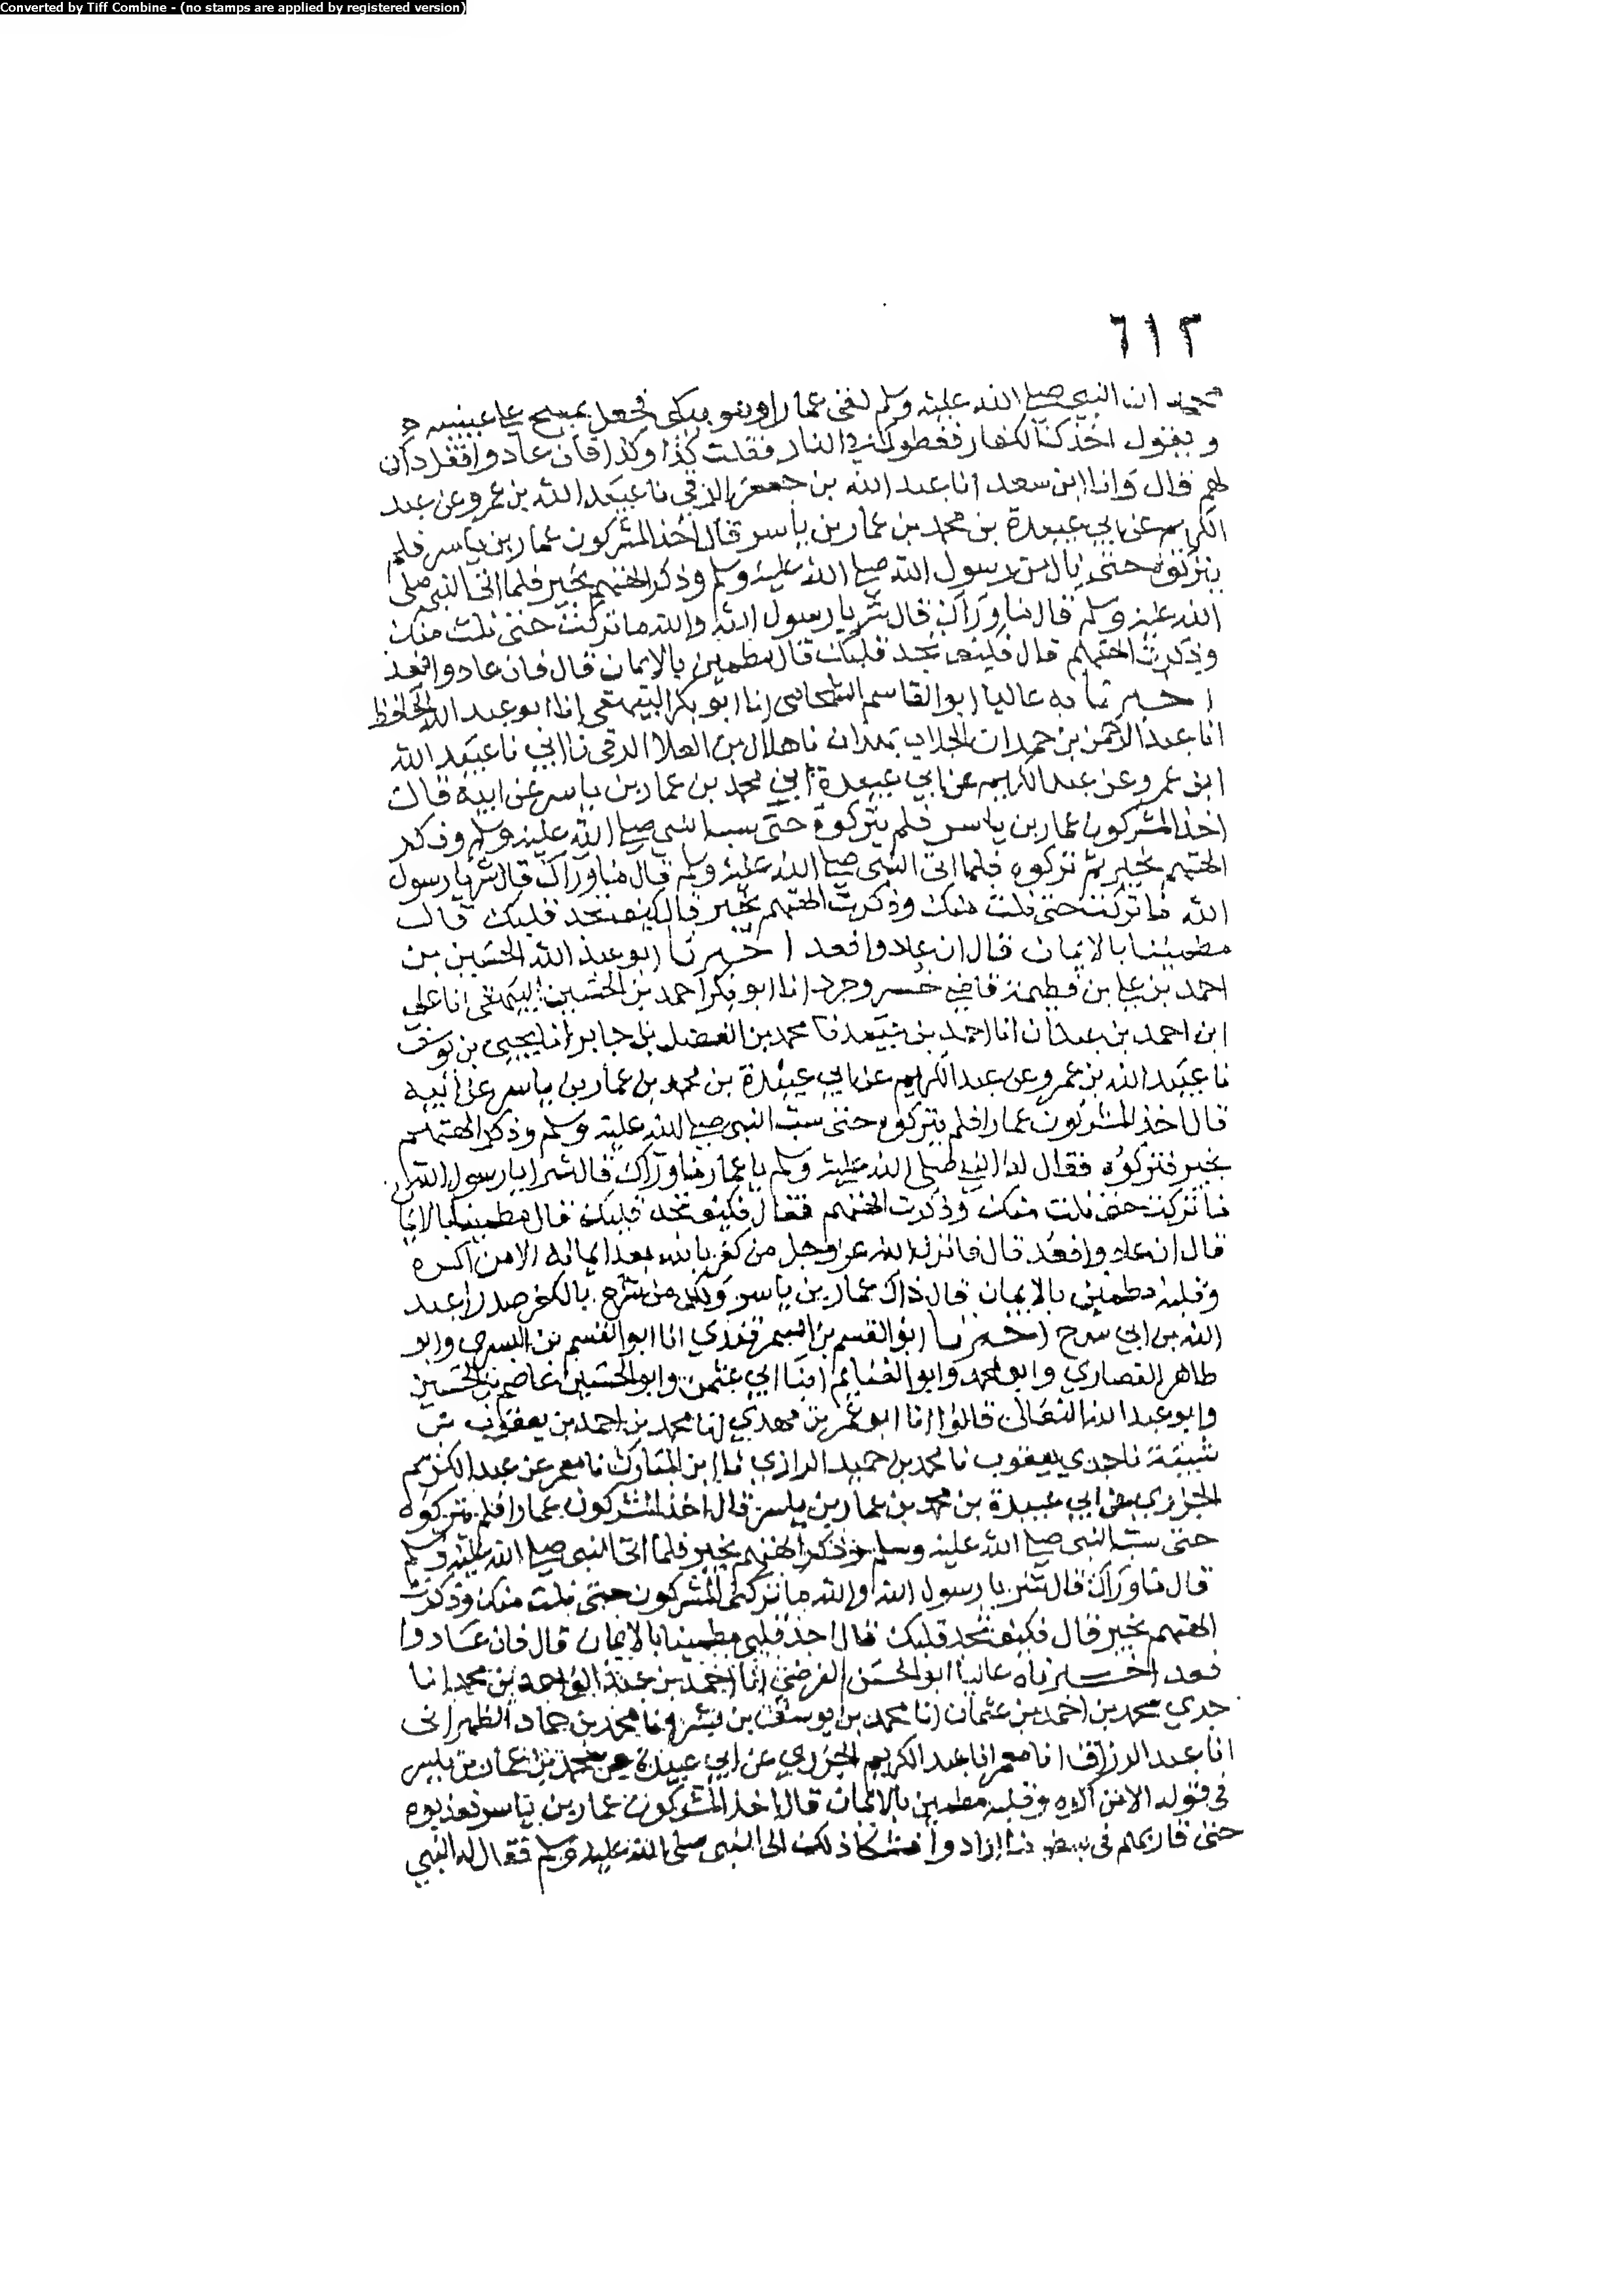 Converted by Tiff Combine - (no stamps are applied by registered version)
٦١٢
محمد ان النبي صلى الله عليه وسلم لقى عمارا وهو يبكي فجعل يمسح عن عينيه
ويقول اخذك الكفار فغطوك في النار فقلت كذا وكذا فان عادوا فقل ذاك
لهم قال وانا ابن سعد انا عبد الله بن جعفر الرقي نا عبيد الله بن عمرو عن عبد
الكريم عن ابي عبيدة بن محمد بن عمار بن ياسر قال اخذ المشركون عمار بن ياسر فلم
يتركوه حتى نال من رسول الله صلى الله عليه وسلم وذكر الهتهم بخير فلما اتى النبي صلى
الله عليه وسلم قال ما وراك قال شر يا رسول الله والله ما تركت حتى نلت منك
وذكرت الهتهم قال فكيف تجد قلبك قال مطمئن بالايمان قال فان عادوا فعد
اخبرنا به عاليا ابو القاسم الشحامي انا ابو بكر البيهقي انا ابو عبد الله الحافظ
انا عبد الرحمن بن حمدان الجلاب بهمدان نا هلال بن العلا الرقي نا ابي نا عبيد الله
ابن عمرو عن عبد الكريم عن ابي عبيدة ابن محمد بن عمار بن ياسر عن ابيه قال
اخذ المشركون عمار بن ياسر فلم يتركوه حتى سب النبي صلى الله عليه وسلم وذكر
الهتهم بخير ثم تركوه فلما اتى النبي صلى الله عليه وسلم قال ما وراك قال شر يا رسول
الله ما تركت حتى نلت منك وذكرت الهتهم بخير قال كيف تجد قلبك قال
مطمئنا بالايمان قال ان عادوا فعد اخبرنا ابو عبد الله الحسين بن
احمد بن علي بن فطيمة قاضي خسروجرد انا ابو بكر احمد بن الحسين البيهقي انا علي
ابن احمد بن عبدان انا احمد بن عبيد نا محمد بن الفضل بن جابر نا يحيى بن يوسف
نا عبيد الله بن عمرو عن عبد الكريم عن ابي عبيدة بن محمد بن عمار بن ياسر عن ابيه
قال اخذ المشركون عمارا فلم يتركوه حتى سب النبي صلى الله عليه وسلم وذكر الهتهم
بخير فتركوه فقال له النبي صلى الله عليه وسلم يا عمار ما وراك قال شر يا رسول الله
ما تركت حتى نلت منك وذكرت الهتهم فقال فكيف تجد قلبك قال مطمئنا بالايمان
قال ان عادوا فعد قال فانزل الله عز وجل من كفر بالله بعد ايمانه الا من اكره
وقلبه مطمئن بالايمان قال ذاك عمار بن ياسر ولكن من شرح بالكفر صدرا عبد
الله بن ابي سرح اخبرنا ابو القسم بن السمرقندي انا ابو القسم بن البسري وابو
طاهر القصاري وابو محمد وابو الغنايم ابنا ابي عثمن وابو الحسين عاصم بن الحسين
وابو عبد الله النعالي قالوا انا ابو عمر بن مهدي انا محمد بن احمد بن يعقوب بن
شيبة نا جدي يعقوب نا محمد بن حميد الرازي نا ابن المبارك نا معمر عن عبد الكريم
الجزري عن ابي عبيدة بن محمد بن عمار بن ياسر قال اخذ المشركون عمارا فلم يتركوه
حتى سب النبي صلى الله عليه وسلم وذكر الهتهم بخير فلما اتى النبي صلى الله عليه وسلم
قال ما وراك قال شر يا رسول الله والله ما تركني المشركون حتى نلت منك وذكرت
الهتهم بخير قال فكيف تجد قلبك قال اجد قلبي مطمئنا بالايمان قال فان عادوا
فعد اخبرناه عاليا ابو الحسن الفرضي انا احمد بن عبد الواحد بن محمد انا
جدي محمد بن احمد بن عثمان انا محمد بن يوسف بن بشر نا محمد بن حماد الطهراني
انا عبد الرزاق انا معمر انا عبد الكريم الجزري عن ابي عبيدة عن محمد بن عمار بن ياسر
في قوله الا من اكره وقلبه مطمئن بالايمان قال اخذ المشركون عمار بن ياسر فعذبوه
حتى قاربهم في بعض ما ارادوا فشكا ذلك الى النبي صلى الله عليه وسلم فقال له النبي